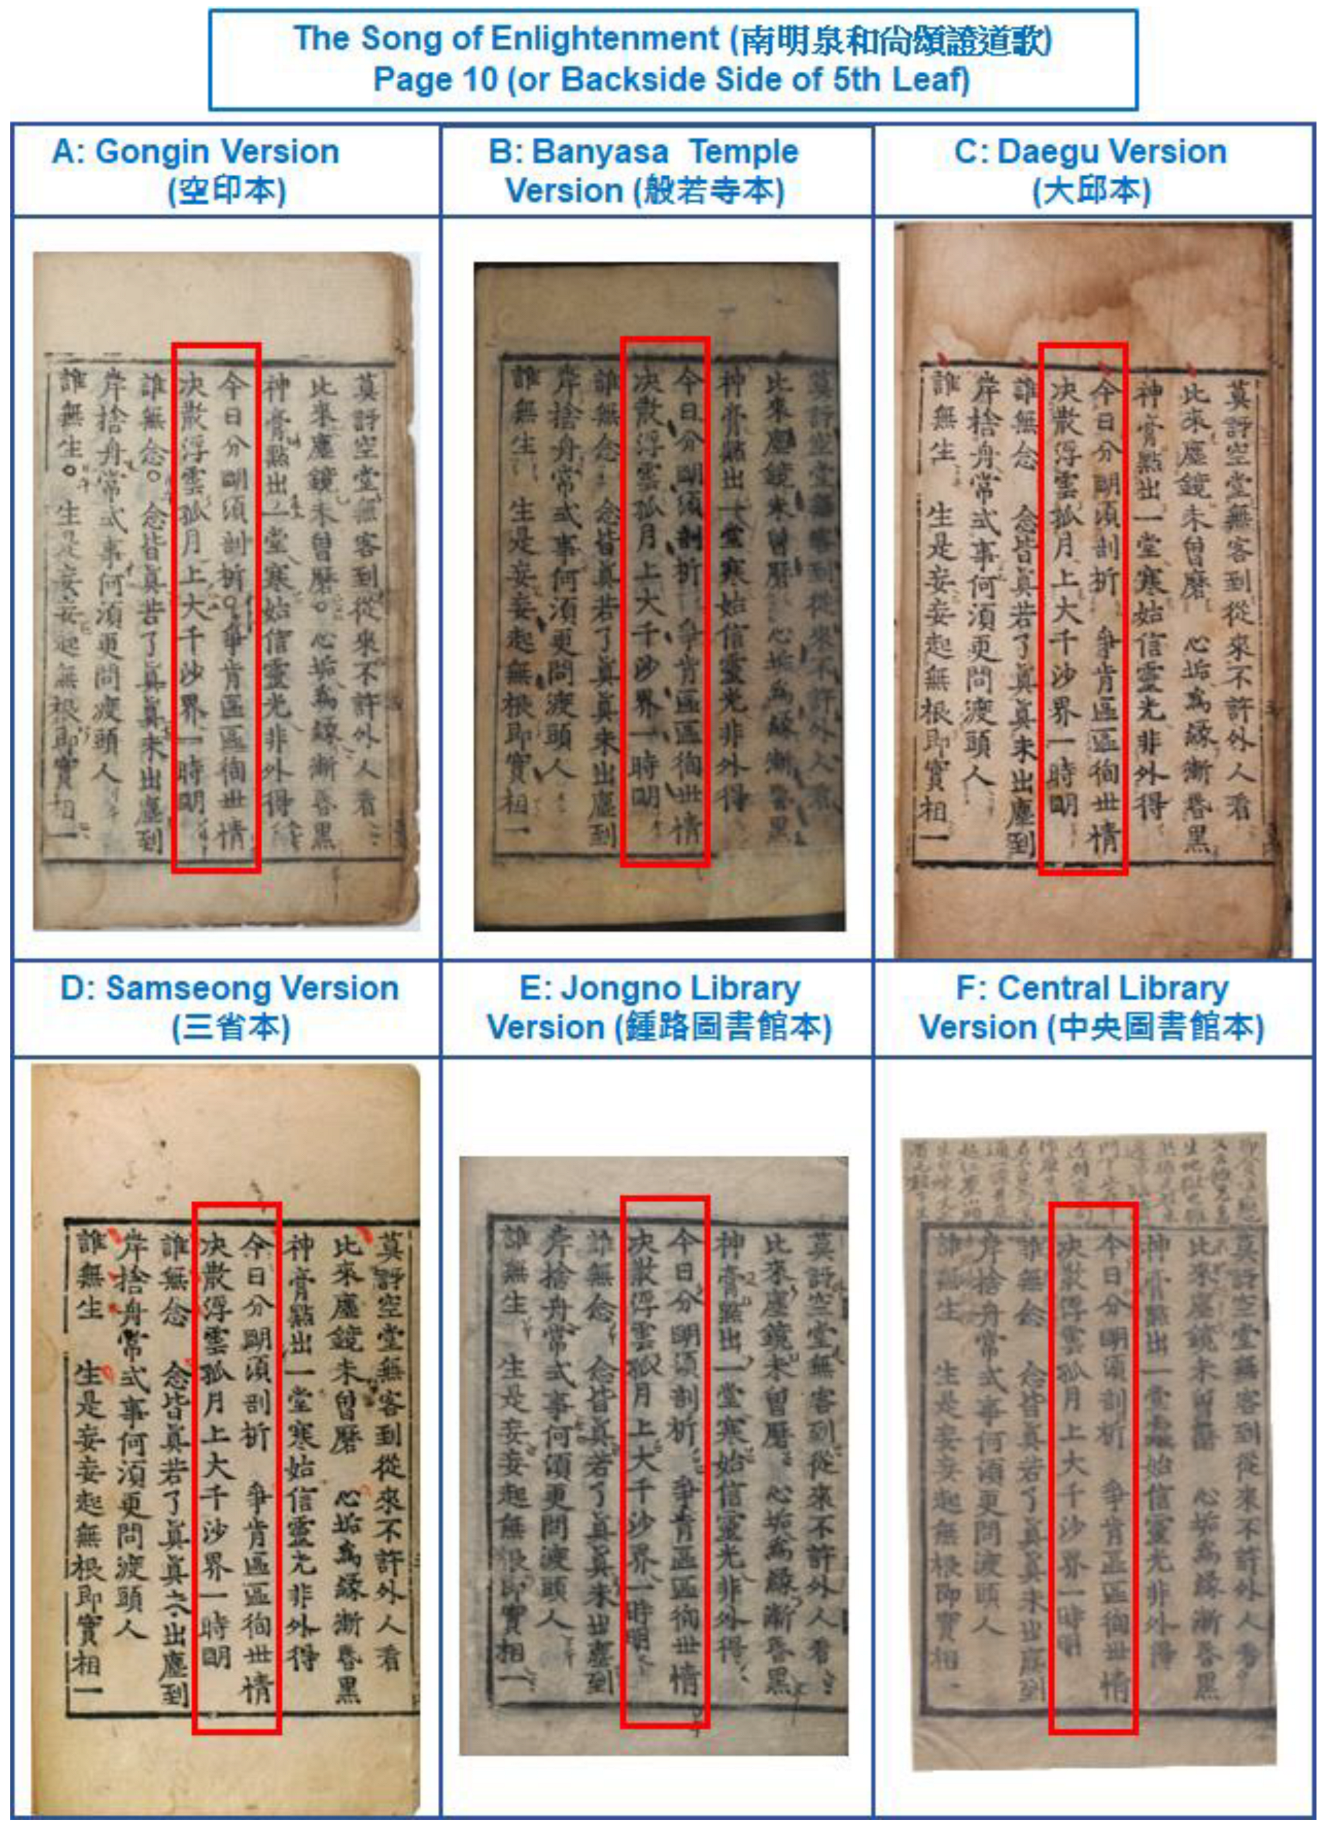 The Song of Enlightenment (南明泉和尙頌證道歌)
Page 10 (or Backside Side of 5th Leaf)
A: Gongin Version
(空印本)
莫訝空堂無客到從來不許外人看
比來塵鏡未曾磨。心垢爲緣漸昏黑
神膏點出一堂寒始信靈光非外得
今日分明湏剖析。爭肯區區徇世情
决散浮雲孤月上大千沙界一時明
誰無念。念皆眞若了眞眞未出塵到
岸捨舟常式事何湏更問渡頭人
誰無生。生是妄妄起無根即實相一
B: Banyasa Temple
Version (般若寺本)
莫訝空堂無客到從來不許外人看
比來塵鏡未曾磨 心垢爲緣漸昏黑
神膏點出一堂寒始信靈光非外得
今日分明湏剖析 爭肯區區徇世情
决散浮雲孤月上大千沙界一時明
誰無念 念皆眞若了眞眞未出塵到
岸捨舟常式事何湏更問渡頭人
誰無生 生是妄妄起無根即實相一
C: Daegu Version
(大邱本)
莫訝空堂無客到從來不許外人看
比來塵鏡未曾磨 心垢爲緣漸昏黑
神膏點出一堂寒始信靈光非外得
今日分明湏剖析 爭肯區區徇世情
决散浮雲孤月上大千沙界一時明
誰無念 念皆眞若了眞眞未出塵到
岸捨舟常式事何湏更問渡頭人
誰無生 生是妄妄起無根即實相一
D: Samseong Version
(三省本)
莫訝空堂無客到從來不許外人看
比來塵鏡未曾磨 心垢爲緣漸昏黑
神膏點出一堂寒始信靈光非外得
今日分明湏剖析 爭肯區區徇世情
决散浮雲孤月上大千沙界一時明
誰無念 念皆眞若了眞眞出塵到
岸捨舟常式事何湏更問渡頭人
誰無生 生是妄妄起無根即實相一
E: Jongno Library
Version (鍾路圖書館本)
莫訝空堂無客到從來不許外人看
比來塵鏡未曾磨 心垢爲緣漸昏黑
神膏點出一堂寒始信靈光非外得
今日分明湏剖析 爭肯區區徇世情
决散浮雲孤月上大千沙界一時明
誰無念 念皆眞若了眞眞未出塵到
岸捨舟常式事何湏更問渡頭人
誰無生 生是妄妄起無根即實相一
F: Central Library
Version (中央圖書館本)
莫訝空堂無客到從來不許外人看
比來塵鏡未曾磨 心垢爲緣漸昏黑
神膏點出一堂寒始信靈光非外得
今日分明湏剖析 爭肯區區徇世情
决散浮雲孤月上大千沙界一時明
誰無念 念皆眞若了眞眞未出塵到
岸捨舟常式事何湏更問渡頭人
誰無生 生是妄妄起無根即實相